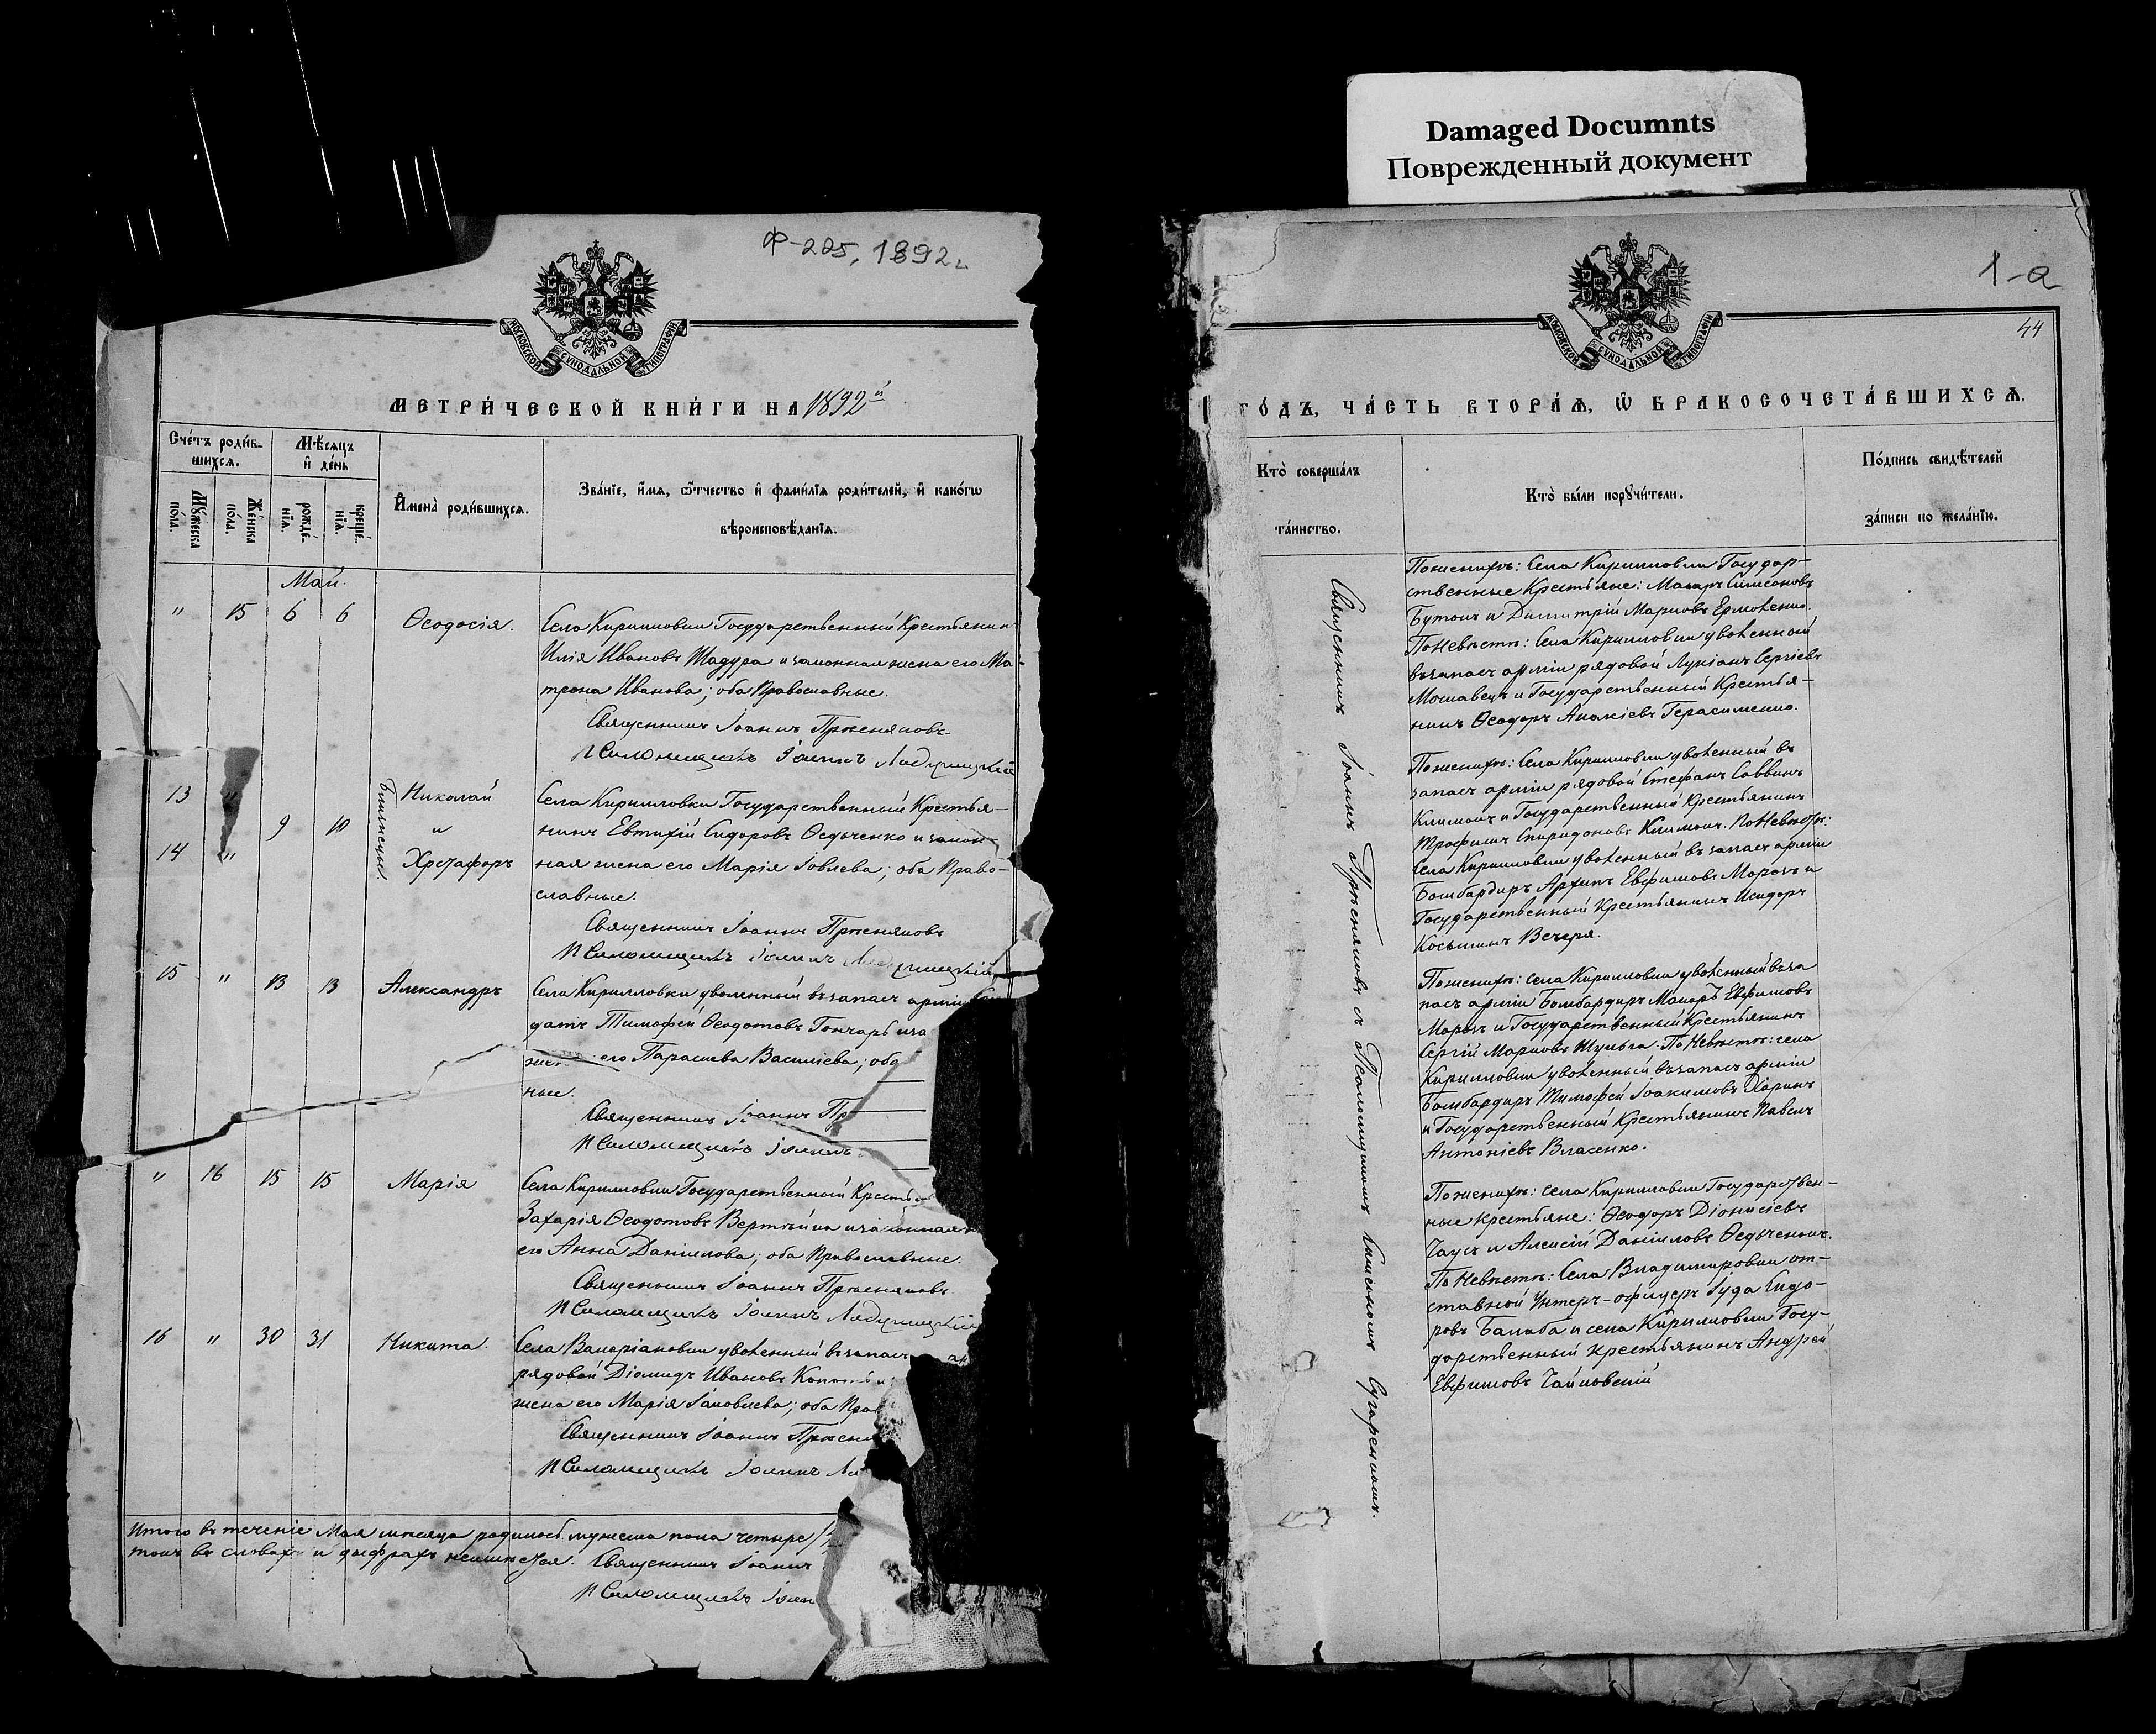 Damaged Documnts
Поврежденный документ
Ф-225, 1892г.
МОСКОВСКОЙ СѴНОДАЛЬНОЙ ТИПОГРАФІИ
МЕТРИ́ЧЕСКОЙ КНИ́ГИ НА 1892й
Сче́тъ роди́в-
шихсѧ.
Мѣ́сѧцъ
и҆ де́нь
Мꙋ́жеска
по́ла.
Же́нска
по́ла.
рожде́-
нїѧ.
креще́-
нїѧ.
И҆мена̀ роди́вшихсѧ.
Зва́нїе, и҆́мѧ, ѻ҆́тчество и҆ фами́лїѧ роди́телей, и҆ како́гѡ
вѣроисповѣ́данїѧ.
Май.
" 15 6 6 Ѳеодосія. Села Кирилловки Государственный Крестьянин
Илія Ивановъ Шадура и законная жена его Ма-
трона Иванова; оба Православные.
Священникъ Іоаннъ Пр
Псаломщикъ Іоаннъ
13 " Близнецы. Николай Села Кирилловки Государственный Крестья-
9 10 и нинъ Евтихій Сидоровъ Ѳедьченко и закон-
14 " Христофоръ ная жена его Марія Іовлева; оба Право-
славные.
Священникъ Іоаннъ
Псаломщикъ Іоаннъ
15 " 13 13 Александръ Села Кирилловки уволенный въ запасъ арміи
датъ Тимофей Ѳеодотовъ Гончаръ и за
жен его Параскева Василіева; оба
ные.
Священникъ Іоаннъ Пр
Псаломщикъ Іоаннъ
" 16 15 15 Марія Села Кирилловки Государственный Кресть
Захарія Ѳеодотовъ и законная
его Анна Даніилова; оба Православные.
Священникъ Іоаннъ
Псаломщикъ Іоаннъ
16 " 30 31 Никита. Села Валеріановки уволенный въ запасъ
рядовой Діомидъ Ивановъ
жена его Марія Іаковлева; оба Прав
Священникъ Іоаннъ
Псаломщикъ Іоаннъ
Итого въ теченіе Мая мѣсяца родилось мужеска пола четыре
въ словахъ и цыфрахъ неимѣется. Священникъ Іоаннъ
Псаломщикъ Іоан
1-а
44
МОСКОВСКОЙ СѴНОДАЛЬНОЙ ТИПОГРАФІИ
ГО́ДЪ, ЧА́СТЬ ВТОРА́Ѧ, Ѡ҆ БРАКОСОЧЕТА́ВШИХСѦ.
Кто̀ соверша́лъ
та́инство.
Кто̀ бы́ли порꙋчи́тели.
По́дпись свидѣ́телей
за́писи по жела́нїю.
Священникъ Іоаннъ съ Псаломщикомъ
По женихѣ: Села Кирилловки Государ-
ственные Крестьяне: Макаръ Симеоновъ
Бутокъ и Димитрій Марковъ Ермоленко.
По Невѣстѣ: Села Кирилловки уволенный
въ запасъ арміи рядовой Лукіанъ Сергіевъ
и Государственный Крестья-
нинъ Ѳеодоръ Герасименко.
По женихѣ: Села Кирилловки уволенный въ
запасъ арміи рядовой Стефанъ Саввинъ
Климокъ и Государственный Крестьянинъ
Трофимъ Спиридоновъ Климокъ. По Невѣстѣ:
Села Кирилловки уволенный въ запасъ арміи
Бомбардиръ Архипъ Евфимовъ Морозъ и
Государственный Крестьянинъ Исидоръ
Косьминъ Вечеря.
По женихѣ: села Кирилловки уволенный въ за
пасъ арміи Бомбардиръ Макаръ Евфимовъ
Морозъ и Государственный Крестьянинъ
Сергій Марковъ Шульга. По Невѣстѣ: села
Кирилловки уволенный въ запасъ арміи
Бомбардиръ Тимофей Іоакимовъ Харинъ
и Государственный Крестьянинъ Павелъ
Антоніевъ Власенко.
По женихѣ: села Кирилловки Государствен-
ные крестьяне: Ѳеодоръ Діонисіевъ
Чаусъ и Алексій Даніиловъ Ѳедьченко.
По Невѣстѣ: Села Владимировки от-
ставной Унтеръ-офицеръ Іуда Сидо-
ровъ Балаба и села Кирилловки Госу-
дарственный крестьянинъ Андрей
Евфимовъ Чайковскій